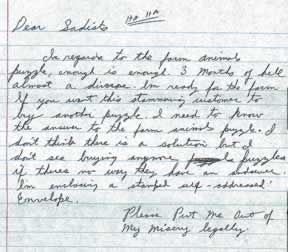 Dear Sadists Ha Ha
In regards to the farm animals
puzzle, enough is enough. 3 months of hell
almost a divorce. Im ready for the farm
If you want this stammering customer to
buy another puzzle. I need to know
the answer to the farm animals puzzle. I
don't think there is a solution but I
don't see buying anymore puzzles
if theres no way they have an answer.
I'm enclosing a stamped self-addressed
Envelope.
Please Put Me Out of
My Misery legally.